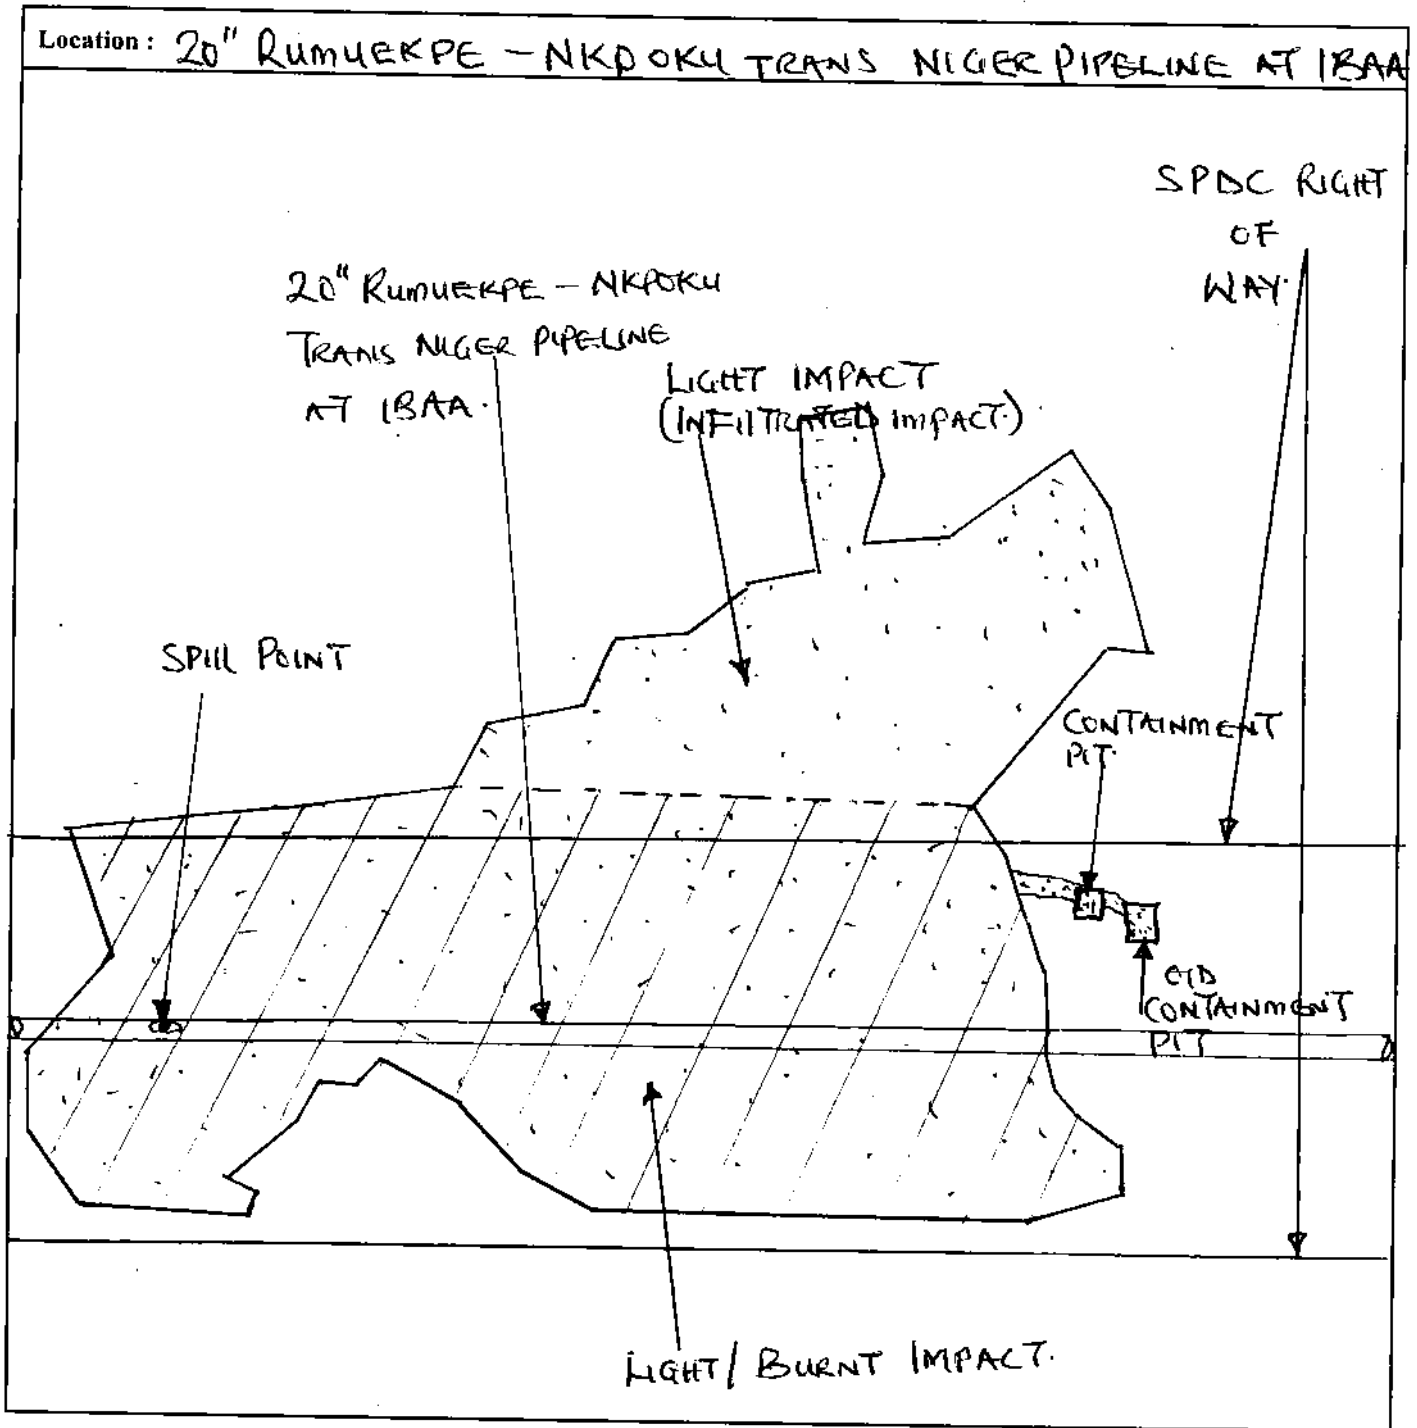 Location : 20" RUMUEKPE - NKPOKU TRANS NIGER PIPELINE AT IBAA
SPDC RIGHT
OF
WAY.
20" RUMUEKPE - NKPOKU
TRANS NIGER PIPELINE
AT IBAA.
LIGHT IMPACT
(INFILTRATED IMPACT.)
SPILL POINT
CONTAINMENT
PIT.
CONTAINMENT
PIT
LIGHT/ BURNT IMPACT.